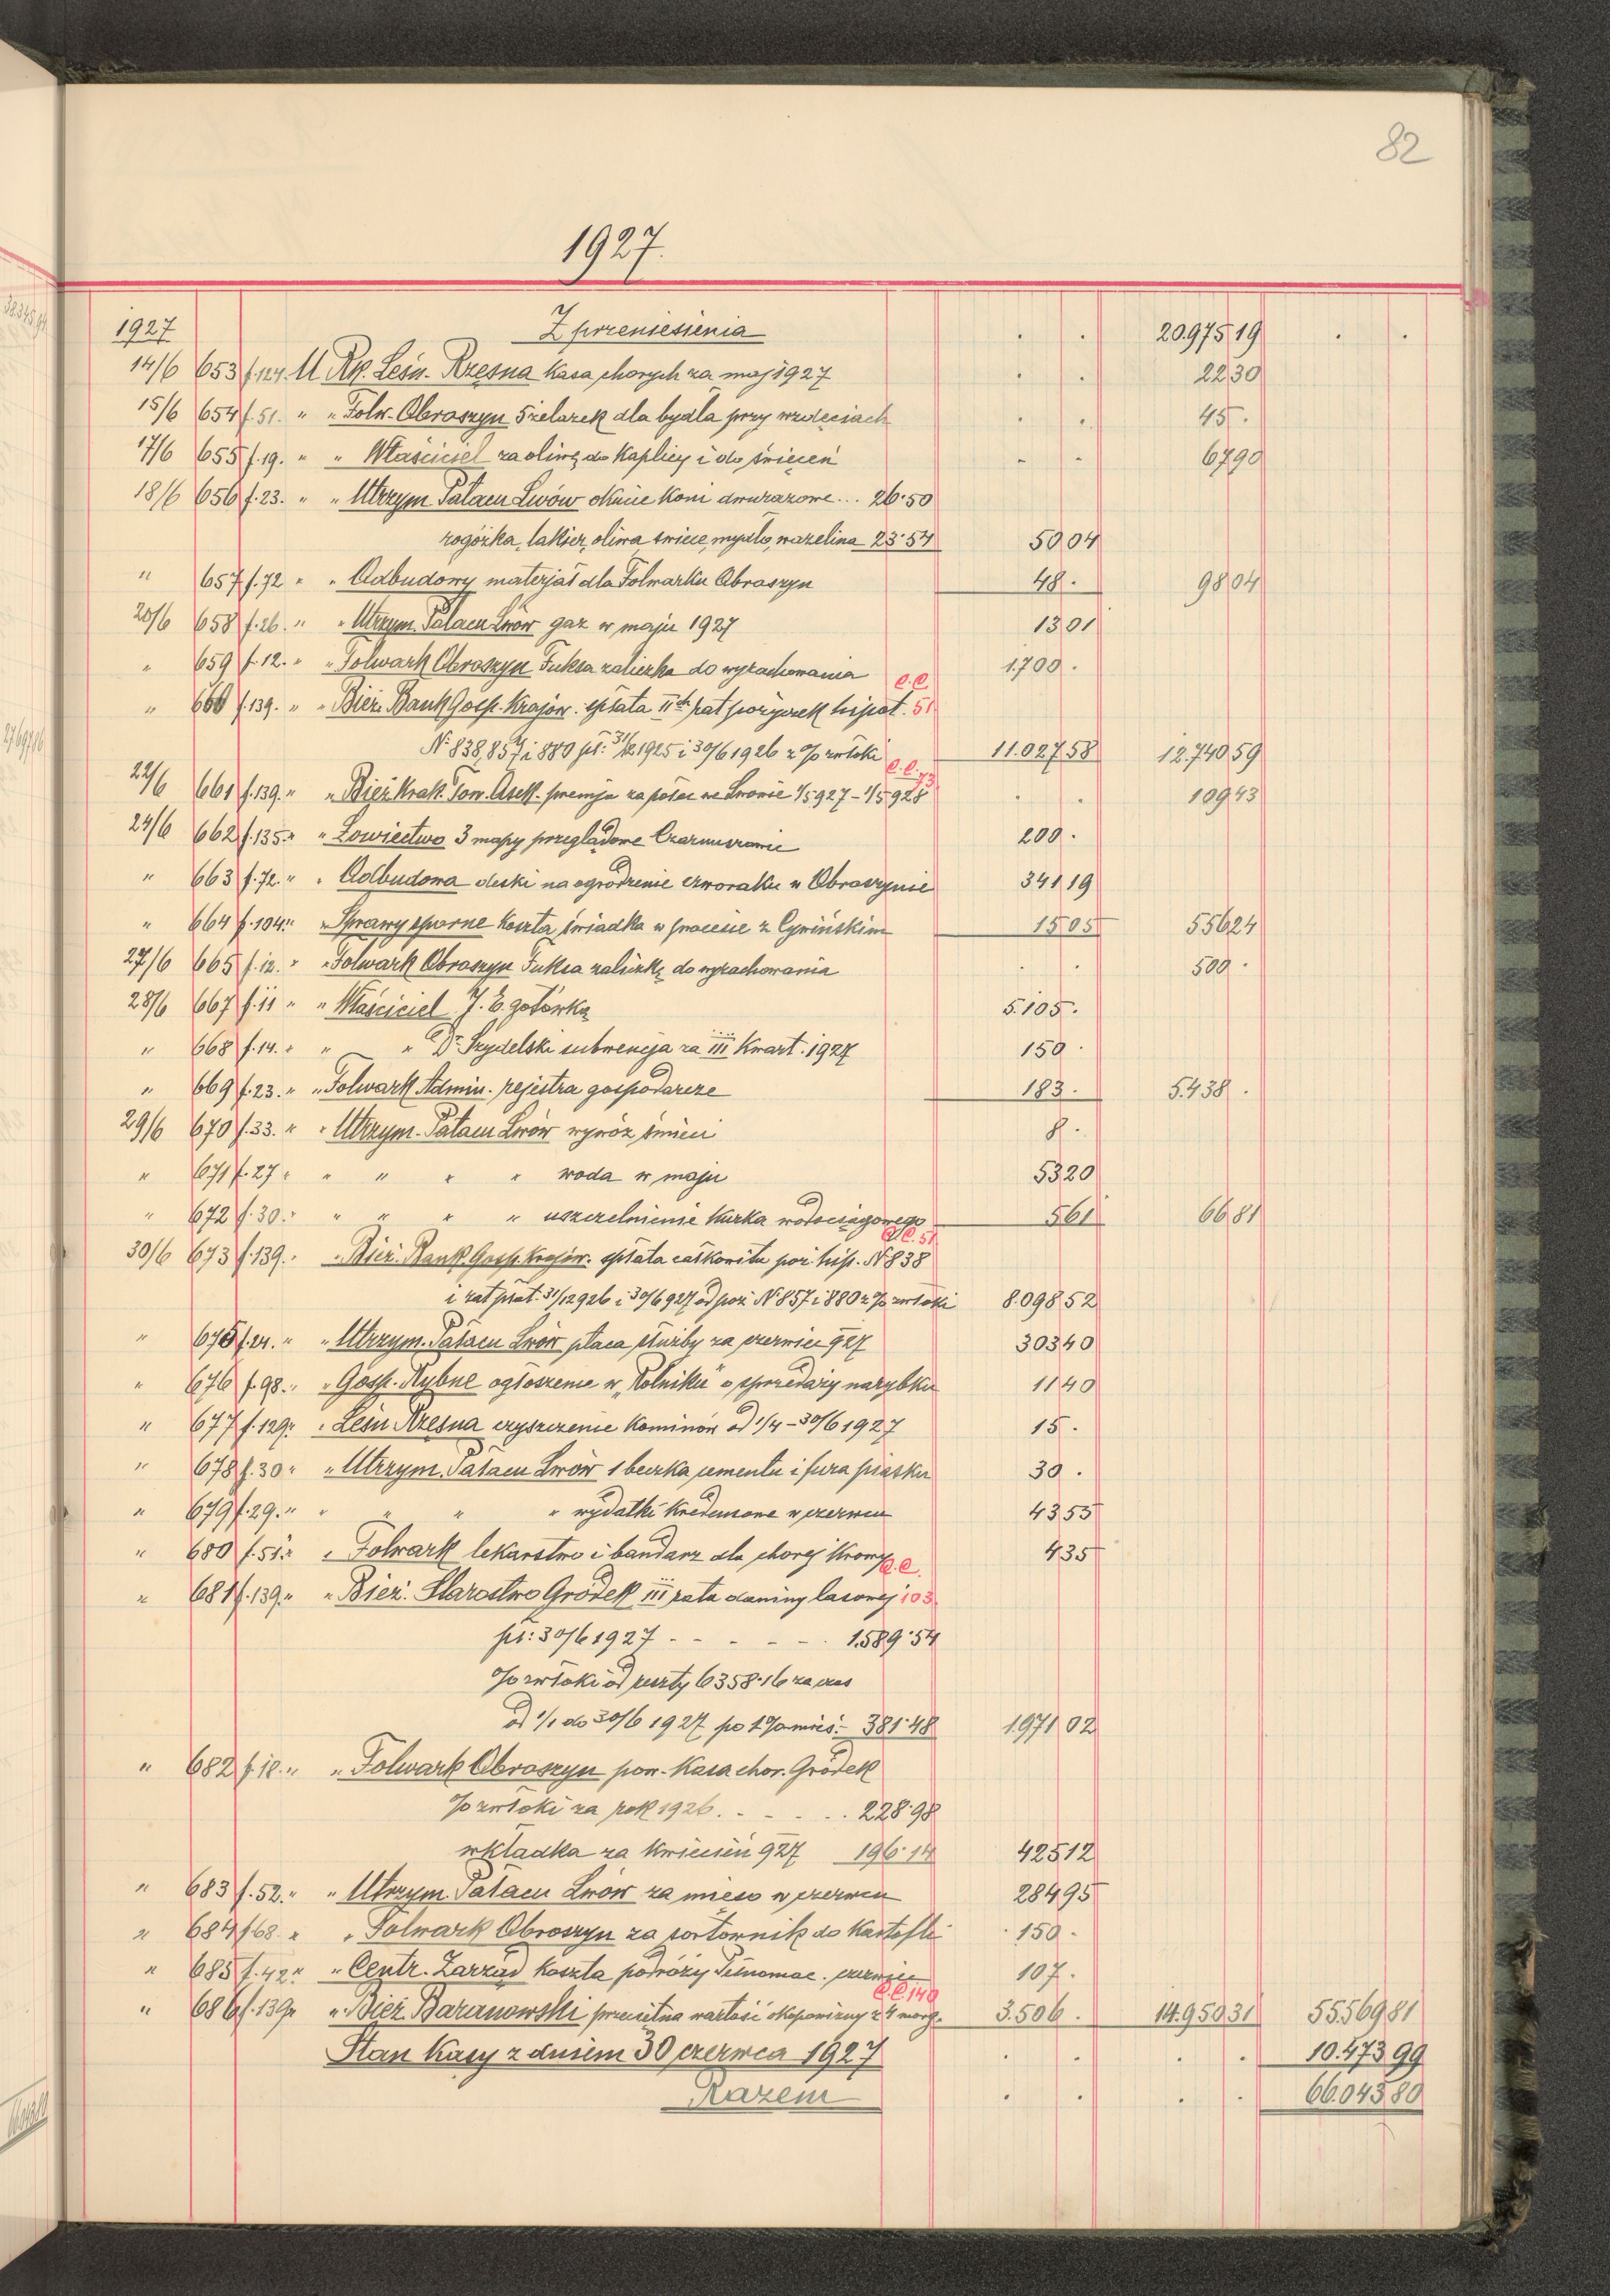 82
1927.
1927 Z przeniesienia . . 20.975 19 . .
14/6 653 f.124. U Rk. Leśn. Rzęsna Kasa chorych za maj 1927 . . 22 30
15/6 654 f.51. " " Folw. Obroszyn Żelazek dla bydła przy wzdęciach . . 45 .
17/6 655 f.19. " " Właściciel za oliwę do Kaplicy i do świeceń - - 67 90
18/6 656 f.23. " " Utrzym. Pałacu Lwów okucie koni dwurazowe... 26·50
rogóżka, lakier, oliwa, świece, mydło, wazelina 23·54 50 04
" 657 f.72 " " Odbudowy materjał dla Folwarku Obroszyn 48 . 98 04
20/6 658 f.26. " " Utrzym. Pałacu Lwów gaz w maju 1927 13 01
" 659 f.12. " " Folwark Obroszyn Fuksa zaliczka do wyrachowania 1.700 .
" 660 f.139. " " Bież. Bank Gosp. Krajow. spłata IIch rat pożyczek hipot. C.C. 51
№ 838, 857 i 880 pł: 31/12 1925 i 30/6 1926 z % zwłoki 11.027 58 12.740 59
22/6 661 f.139. " " Bież Krak. Tow. Asek. premja za pałac we Lwowie 1/5 927 - 1/5 928 C.C. 73 . . 109 43
24/6 662 f.135. " " Łowiectwo 3 mapy przeglądowe 200 .
" 663 f.72. " " Odbudowa deski na ogrodzenie czworaku w Obroszynie 341 19
" 664 f.104. " " Sprawy sporne Koszta świadka w procesie z Cywińskim 15 05 556 24
27/6 665 f.12. " " Folwark Obroszyn Fuksa zaliczkę do wyrachowania . . 500 .
28/6 667 f.11 " " Właściciel J. E. gotówką 5.105 .
" 668 f.14. " " " Dr Szydelski subwencja za III Kwart. 1927 150 .
" 669 f.23. " " Folwark Admin. rejestra gospodarcze 183 . 5.438 .
29/6 670 f.33. " " Utrzym. Pałacu Lwów wywóz śmieci 8 .
" 671 f.27 " " " " " woda w maju 53 20
" 672 f.30. " " " " " uszczelnienie Kurka wodociągowego 5 61 66 81
30/6 673 f.139. " " Bież. Bank Gosp. Krajow. spłata całkowita poż. hip. № 838 C.C. 51
i rat płat. 31/12 926 i 30/6 927 od poż № 857 i 880 z % zwłoki 8.098 52
" 675 f.24. " " Utrzym. Pałacu Lwów płaca służby za czerwiec 927 303 40
" 676 f.98. " " Gosp. Rybne ogłoszenie w „Rolniku" o sprzedaży narybku 11 40
" 677 f.129. " " Leśn Rzęsna czyszczenie Kominów od 1/4 - 30/6 1927 15 .
" 678 f.30 " " Utrzym. Pałacu Lwów 1 beczka cementu i fura piasku 30 .
" 679 f.29. " " " " " wydatki Kredensowe w czerwcu 43 55
" 680 f.51. " " Folwark lekarstwo i bandaż dla chorej Krowy 4 35
" 681 f.139. " " Bież. Starostwo Gródek III rata daniny lasowej C.C. 103.
pł: 30/6 1927 - - - - - - 1.589·54
% zwłoki od reszty 6358·16 za czas
od 1/1 do 30/6 1927 po 1% mieś. - 381·48 1.971 02
" 682 f.18. " " Folwark Obroszyn pow. Kasa chor. Gródek
% zwłoki za rok 1926. . - - . . 228·98
wkładka za Kwiecień 927 196·14 425 12
" 683 f.52. " " Utrzym. Pałacu Lwów za mięso w czerwcu 284 95
" 684 f.68. " " Folwark Obroszyn za sortownik do Kartofli 150 .
" 685 f.42. " " Centr. Zarząd Koszta podróży Pełnomoc. czerwiec 107 .
" 686 f.139. " " Bież. Baranowski przeciętna wartość z 4 morg. C.C. 140 3.506 . 14.950 31 55.569 81
Stan Kasy z dniem 30 czerwca 1927 . . . . 10.473 99
Razem . . . . 66.043 80